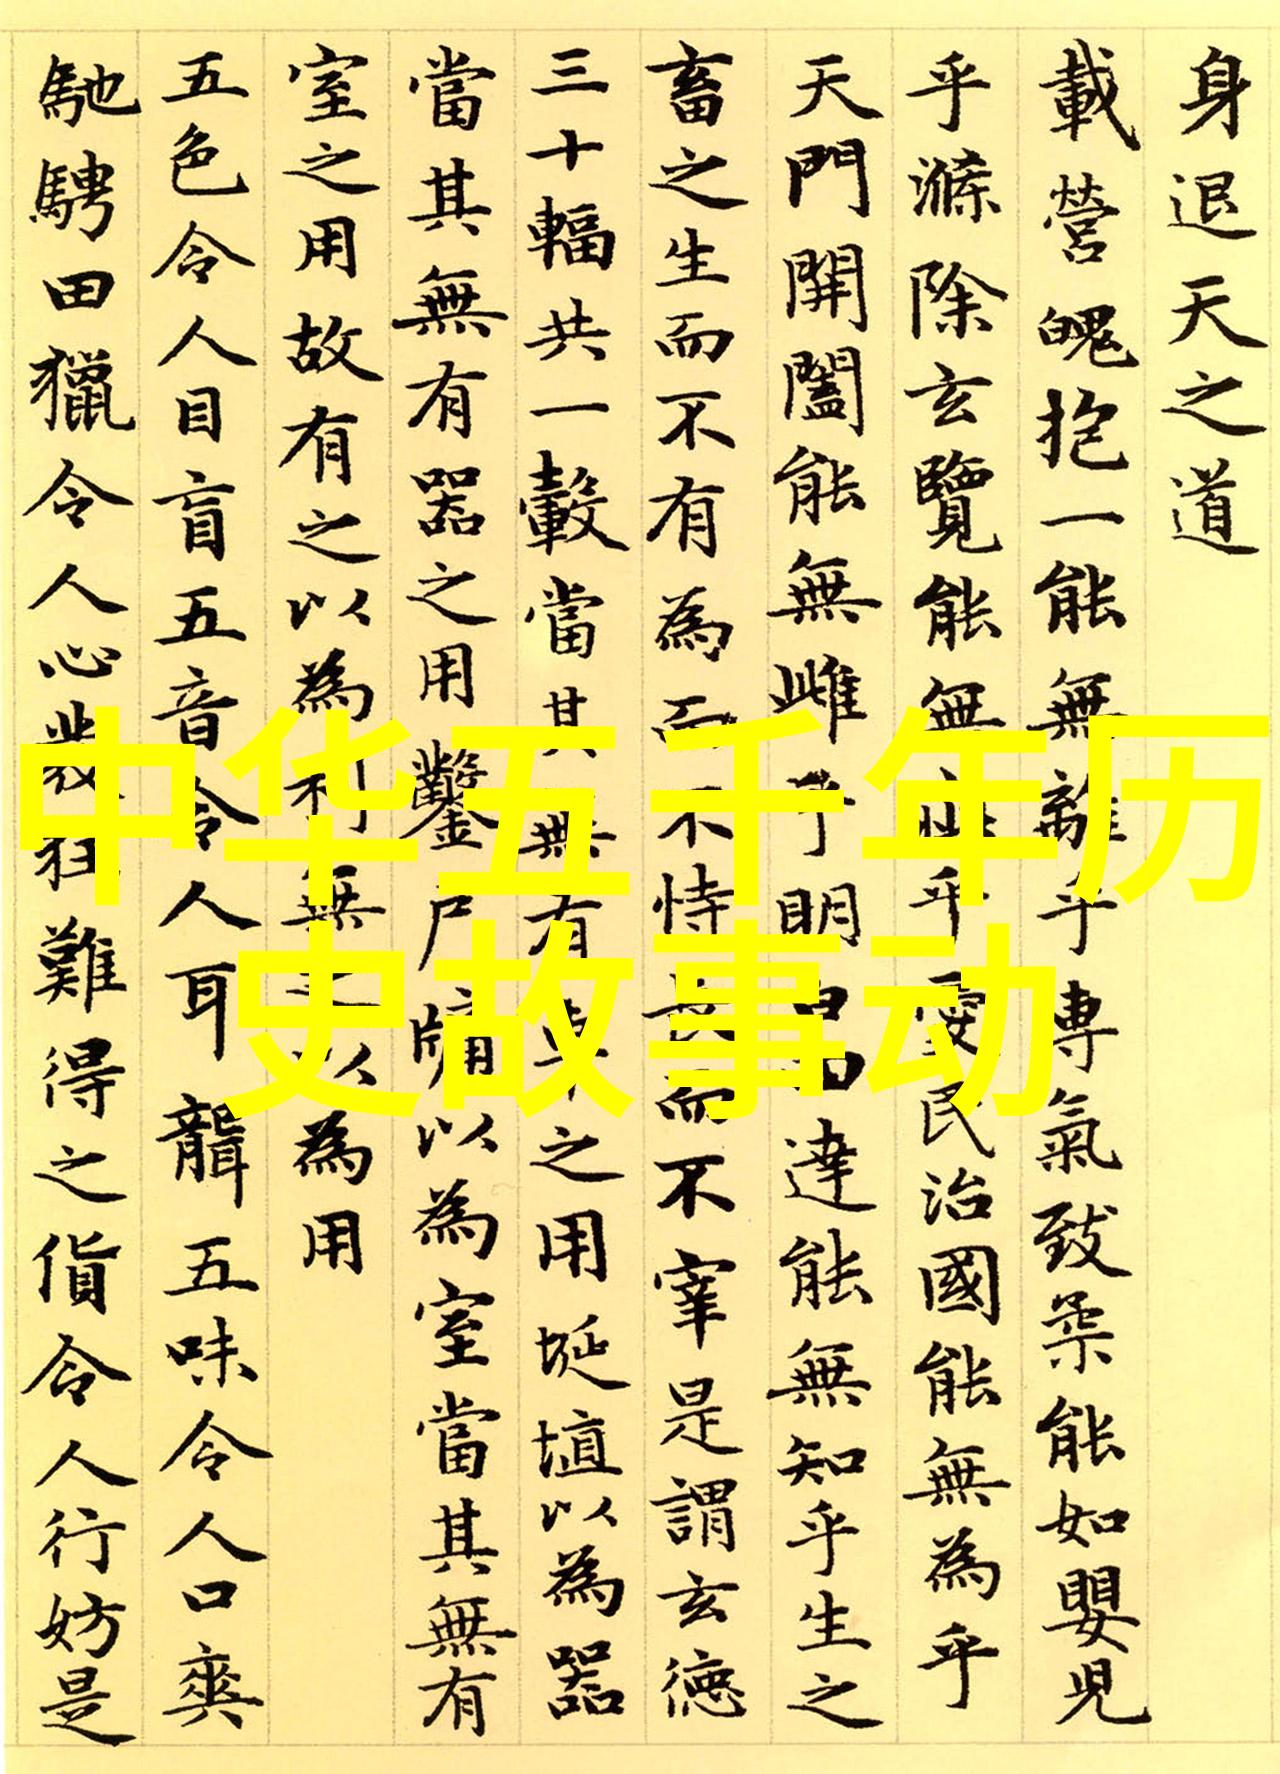 身退天之道
載營魄抱一能無離乎專氣致柔能如嬰兒
乎滌除玄覽能無疵乎愛民治國能無為乎
天門開闔能無雌乎明白四達能無知乎生之
畜之生而不有為而不恃長而不宰是謂玄德
三十輻共一轂當其無有車之用埏埴以為器
當其無有器之用鑿戶牖以為室當其無有
室之用故有之以為利無之以為用
五色令人目盲五音令人耳聾五味令人口爽
馳騁田獵令人心發狂難得之貨令人行妨是
中华五千年历
史故事动